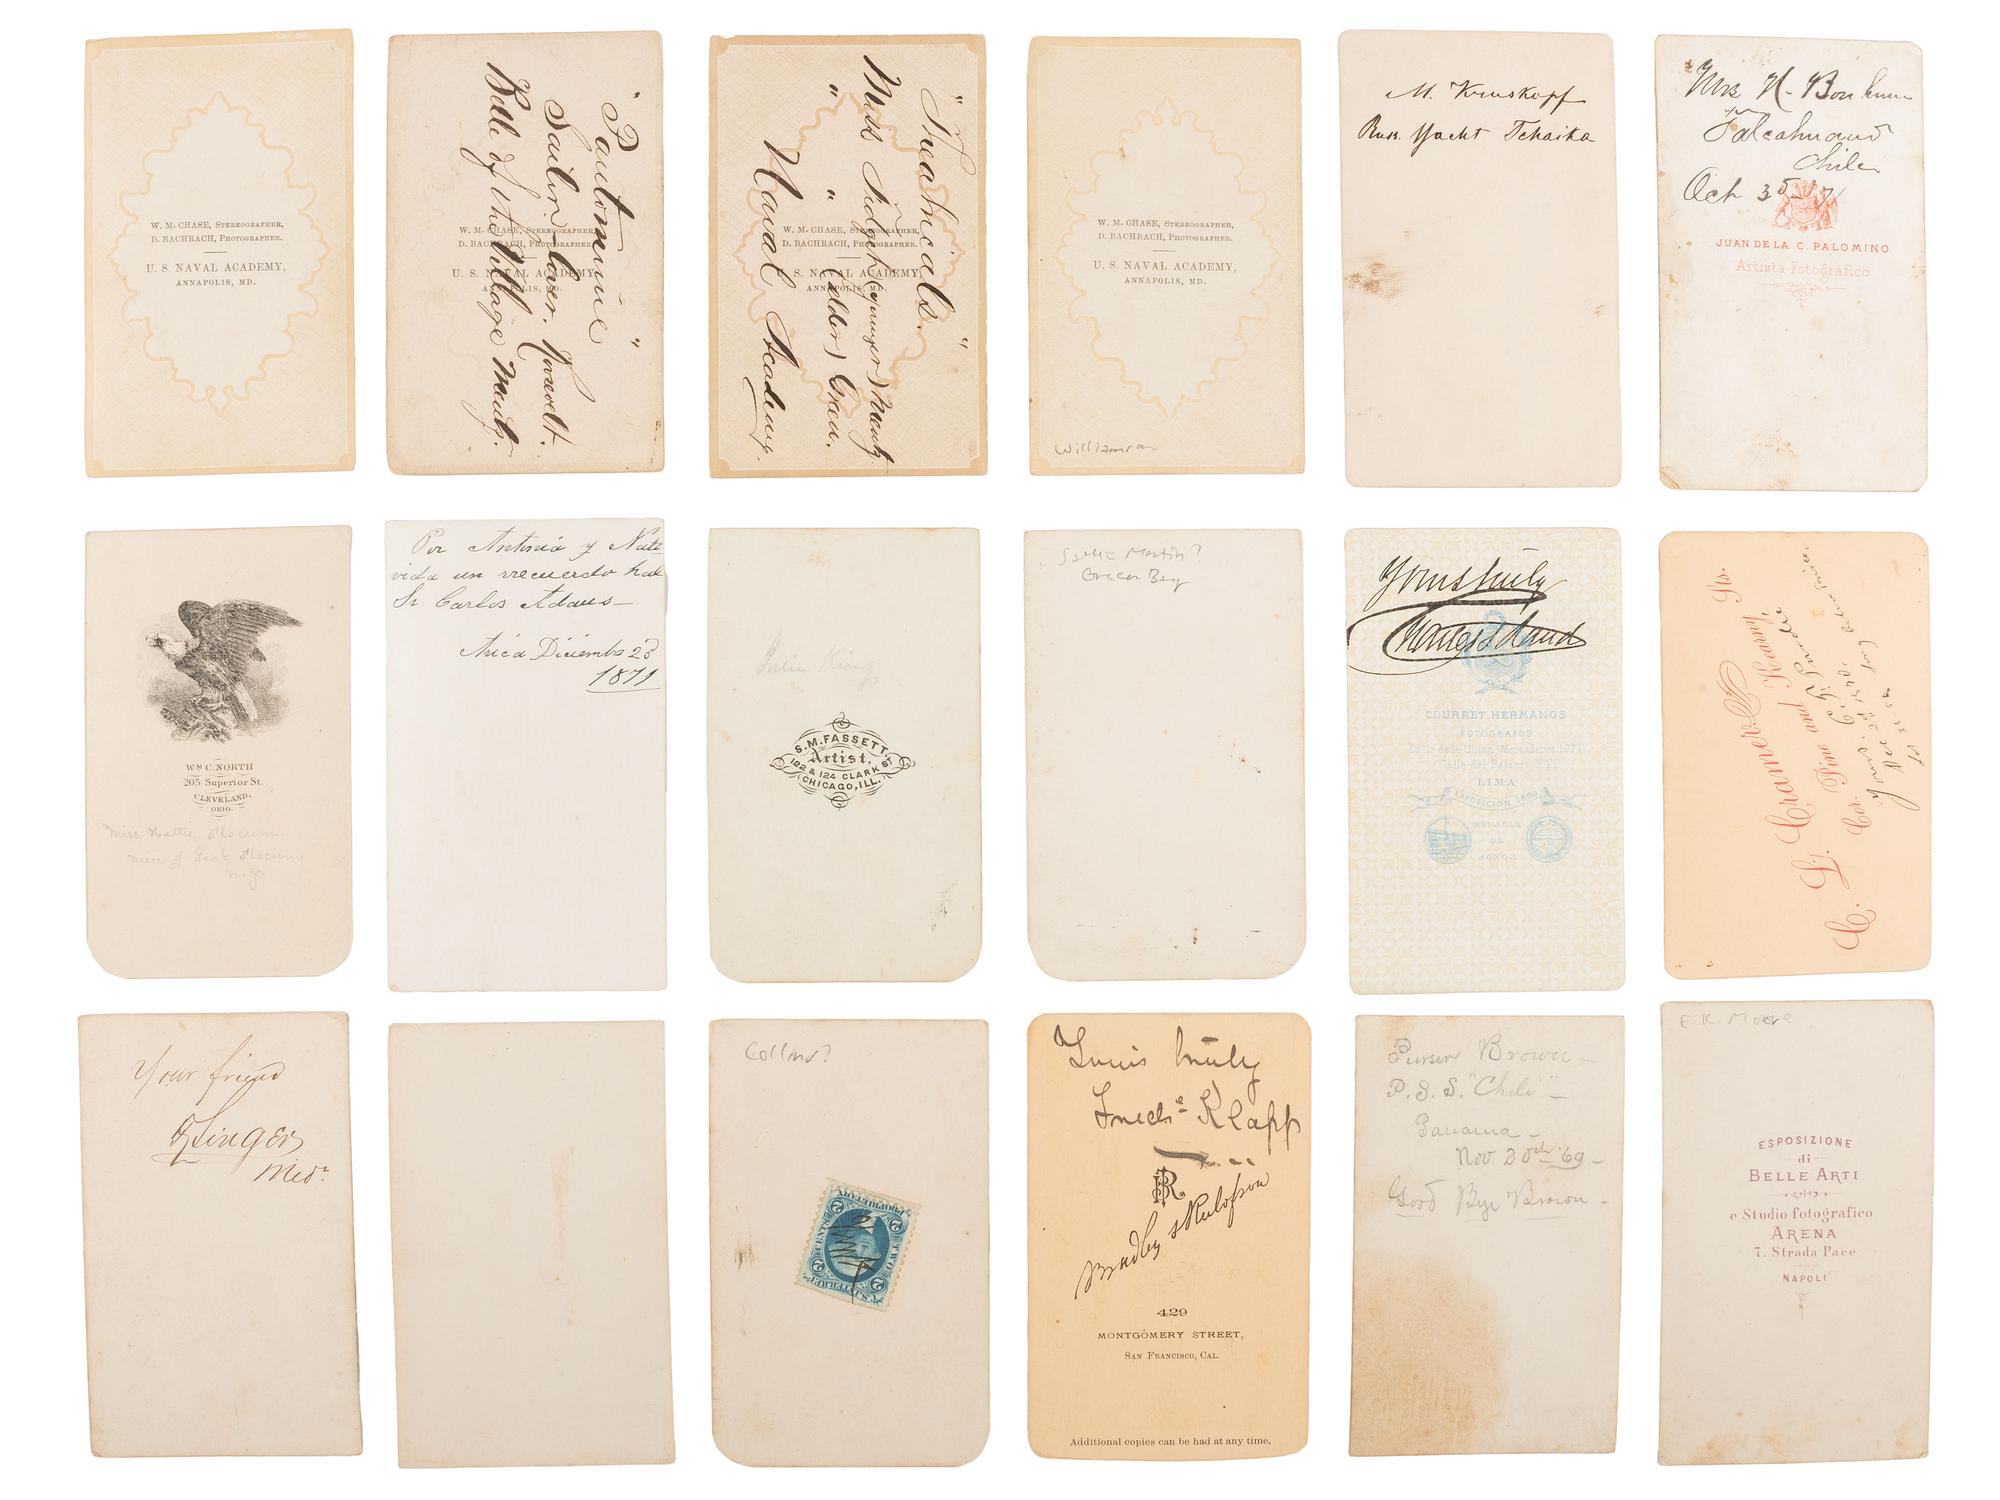 W. M. CHASE, STEREOGRAPHER,
D. BACHRACH, PHOTOGRAPHER.
U. S. NAVAL ACADEMY,
ANNAPOLIS, MD.
"Pantomime"
Sailor-Lover.
Belle of the Village
W. M. CHASE, STEREOGRAPHER,
D. BACHRACH, PHOTOGRAPHER.
U. S. NAVAL ACADEMY,
ANNAPOLIS, MD.
"Theatricals."
Miss (younger)
" " (elder)
Naval Academy.
W. M. CHASE, STEREOGRAPHER,
D. BACHRACH, PHOTOGRAPHER.
U. S. NAVAL ACADEMY,
ANNAPOLIS, MD.
W. M. CHASE, STEREOGRAPHER,
D. BACHRACH, PHOTOGRAPHER.
U. S. NAVAL ACADEMY,
ANNAPOLIS, MD.
Williamson
M. Kruskopf
Russ. Yacht Tchaika
Mrs N-
Chile
Oct
JUAN DE LA C. PALOMINO
Artista Fotografico
WM C. NORTH
205 Superior St.
CLEVELAND,
OHIO.
Miss Hattie Slocum.
niece of Slocum
N.Y.
Por Antonia y Nati
vida un recuerdo
Sr Carlos Adams
Arica Diciembe 23
1871
Julia King
S. M. FASSETT,
Artist,
122 & 124 CLARK ST
CHICAGO, ILL.
Sallie Martin?
Green Bay
Yours truly
COURRET HERMANOS
FOTOGRAFOS
LIMA
EXPOSICION 1869
MEDALLA
DE
HONOR
C. L. Cramer
Cor. Pine and Kearny Sts.
Your friend
Collins?
2 CENTS
TWO
PROPRIETARY
U.S. INTER. REV.
Yours truly
Klapp
BR
Bradley & Rulofson
429
MONTGOMERY STREET,
SAN FRANCISCO, CAL.
Additional copies can be had at any time.
Purser Brown-
P. S. S. "Chile"-
Panama-
Nov. 20th '69-
Good Bye Brown-
E. K. Moore
ESPOSIZIONE
di
BELLE ARTI
e Studio fotografico
ARENA
7. Strada Pace
NAPOLI